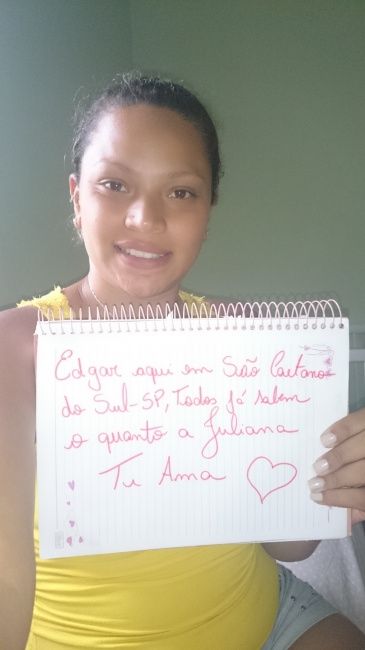 Edgar aqui em São Caetano
do Sul-SP, Todos já sabem
o quanto a Juliana
Tu Ama